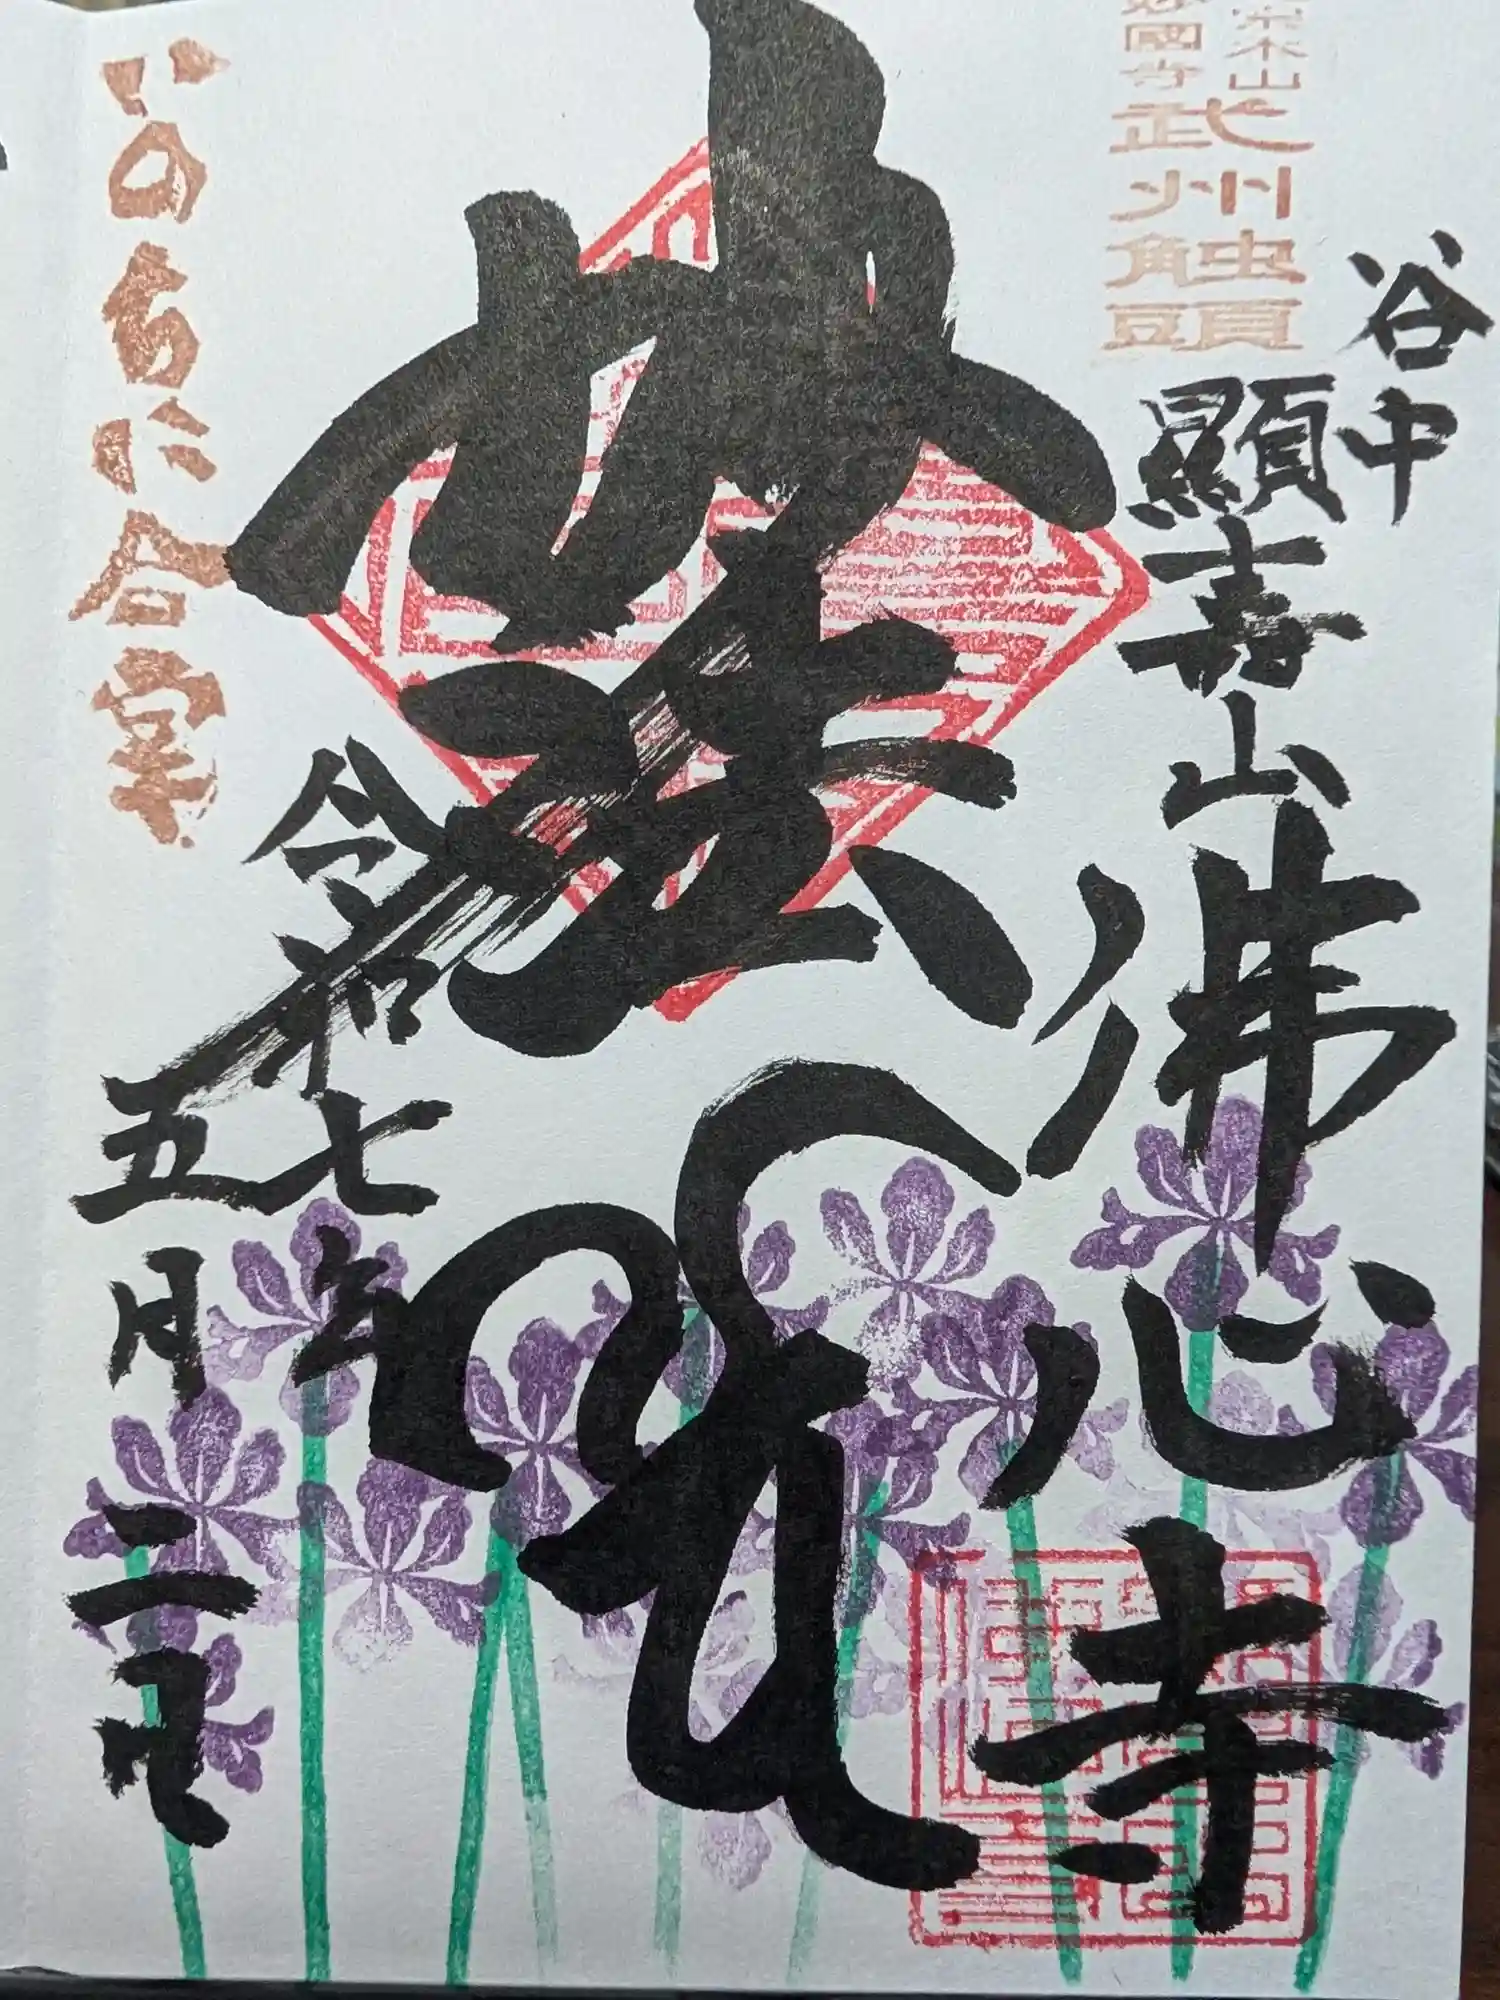 谷中
栄木山
妙國寺
武州触頭
顯寿山
佛心寺
妙法
令和七年
五月二日
いのちに合掌